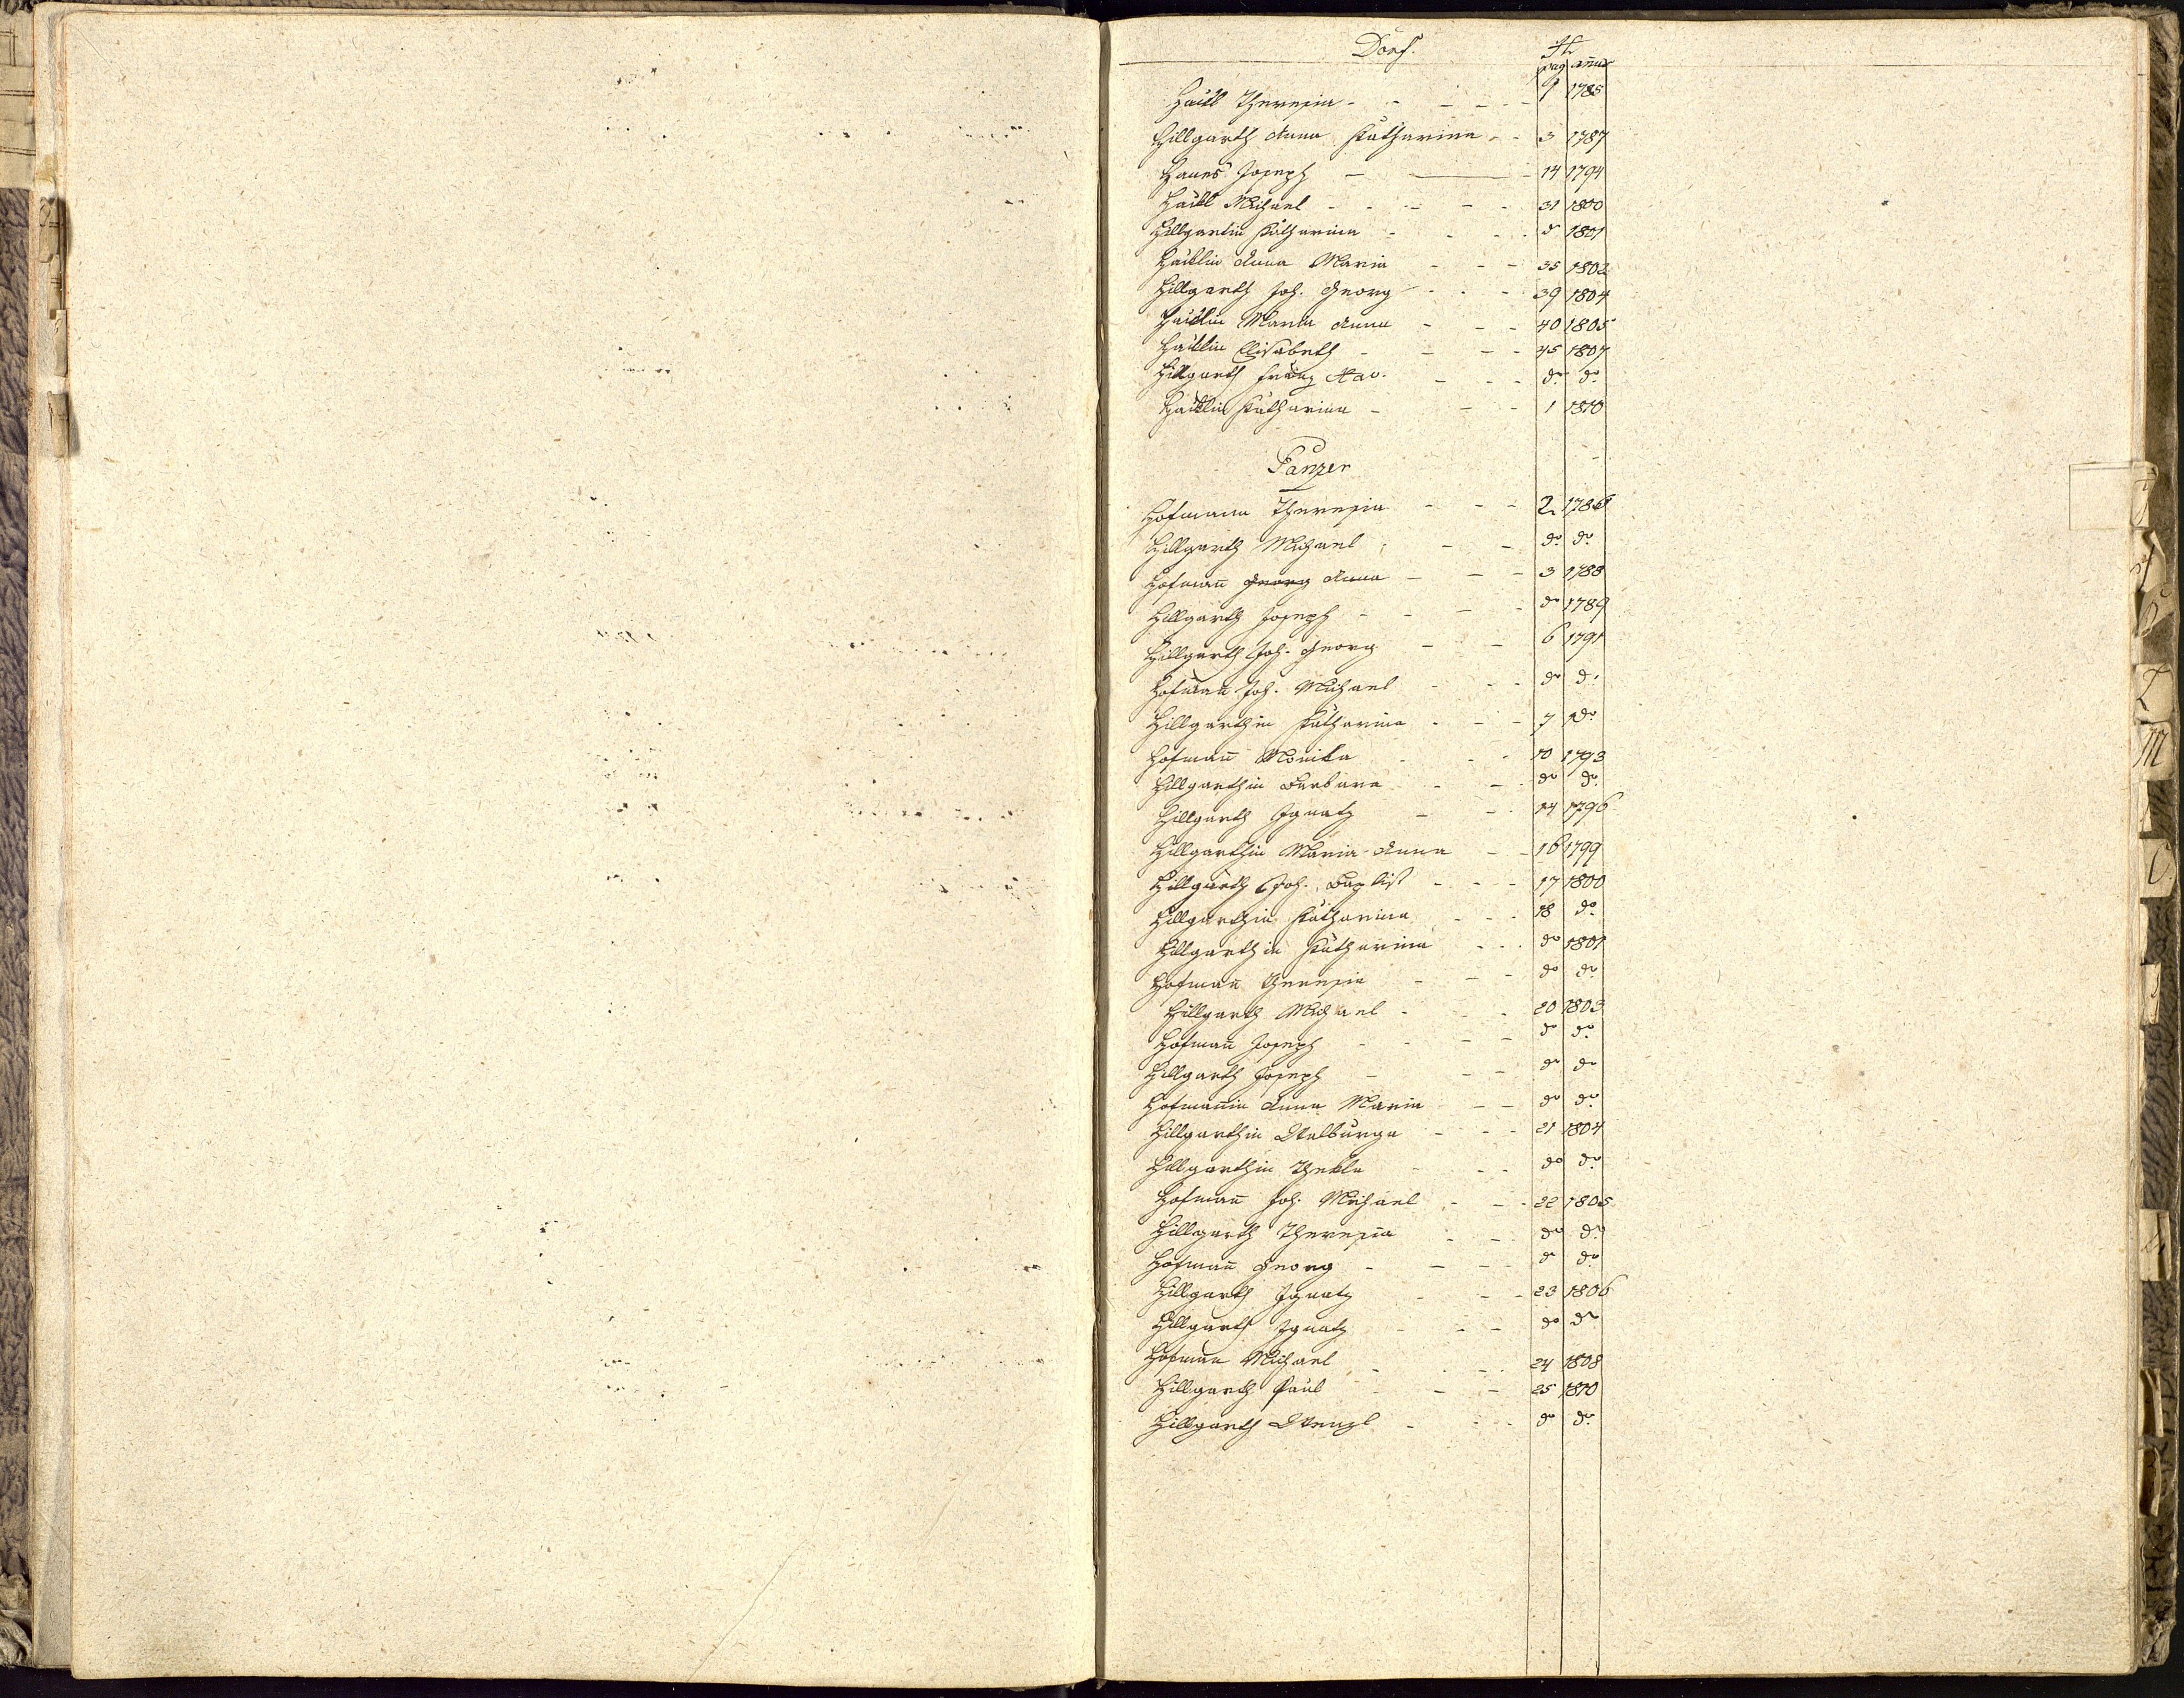 Dorf. H
pag annus
Haibl Theresia - - - - - 1 1785
Hillgarth Anna Katharina - - 3 1787
Hanes Joseph - - 14 1794
Haibl Michael - - - - - 31 1800
Hillgartin Katharina - - - do 1801
Haiblin Anna Maria - - - 35 1802
Hillgarth Joh. Georg - - - 39 1804
Haiblin Maria Anna - - - 40 1805
Haiblin Elisabeth - - - - 45 1807
Hillgarth Franz Xav. - - - do do
Haiblin Katharina - - - 1 1810
Panzer
Hofmann Theresia - - - 2 1786
Hillgarth Michael - - do do
Hofmañ Georg Anna - - - 3 1788
Hillgarth Joseph - - - - do 1789
Hillgarth Joh. Georg - - 6 1791
Hofmañ Joh. Michael - - - do do
Hillgarthin Katharina - - - 7 do
Hofmañ Monika - - - 10 1793
Hillgarthin Barbara - - do do
Hillgarth Ignatz - - - 14 1796
Hillgarthin Maria Anna - - 16 1799
Hillgarth Joh. Baptist - - - 17 1800
Hillgarthin Katharina - - - 18 do
Hillgarthin Katharina - - - do 1801
Hofmañ Theresia - - - do do
Hillgarth Michael - - - 20 1803
Hofmañ Joseph - - - - do do
Hillgarth Joseph - - - do do
Hofmañin Anna Maria - - do do
Hillgarthin Walburga - - - 21 1804
Hillgarthin Thekla - - - do do
Hofmañ Joh. Michael - - - 22 1805
Hillgarth Theresia - - do do
Hofmañ Georg - - - - do do
Hillgarth Ignatz - - - 23 1806
Hillgarth Ignatz - - - do do
Hofmañ Michael - - - 24 1808
Hillgarth Paul - - - 25 1810
Hillgarth Wenzl - - - do do
L
M
O